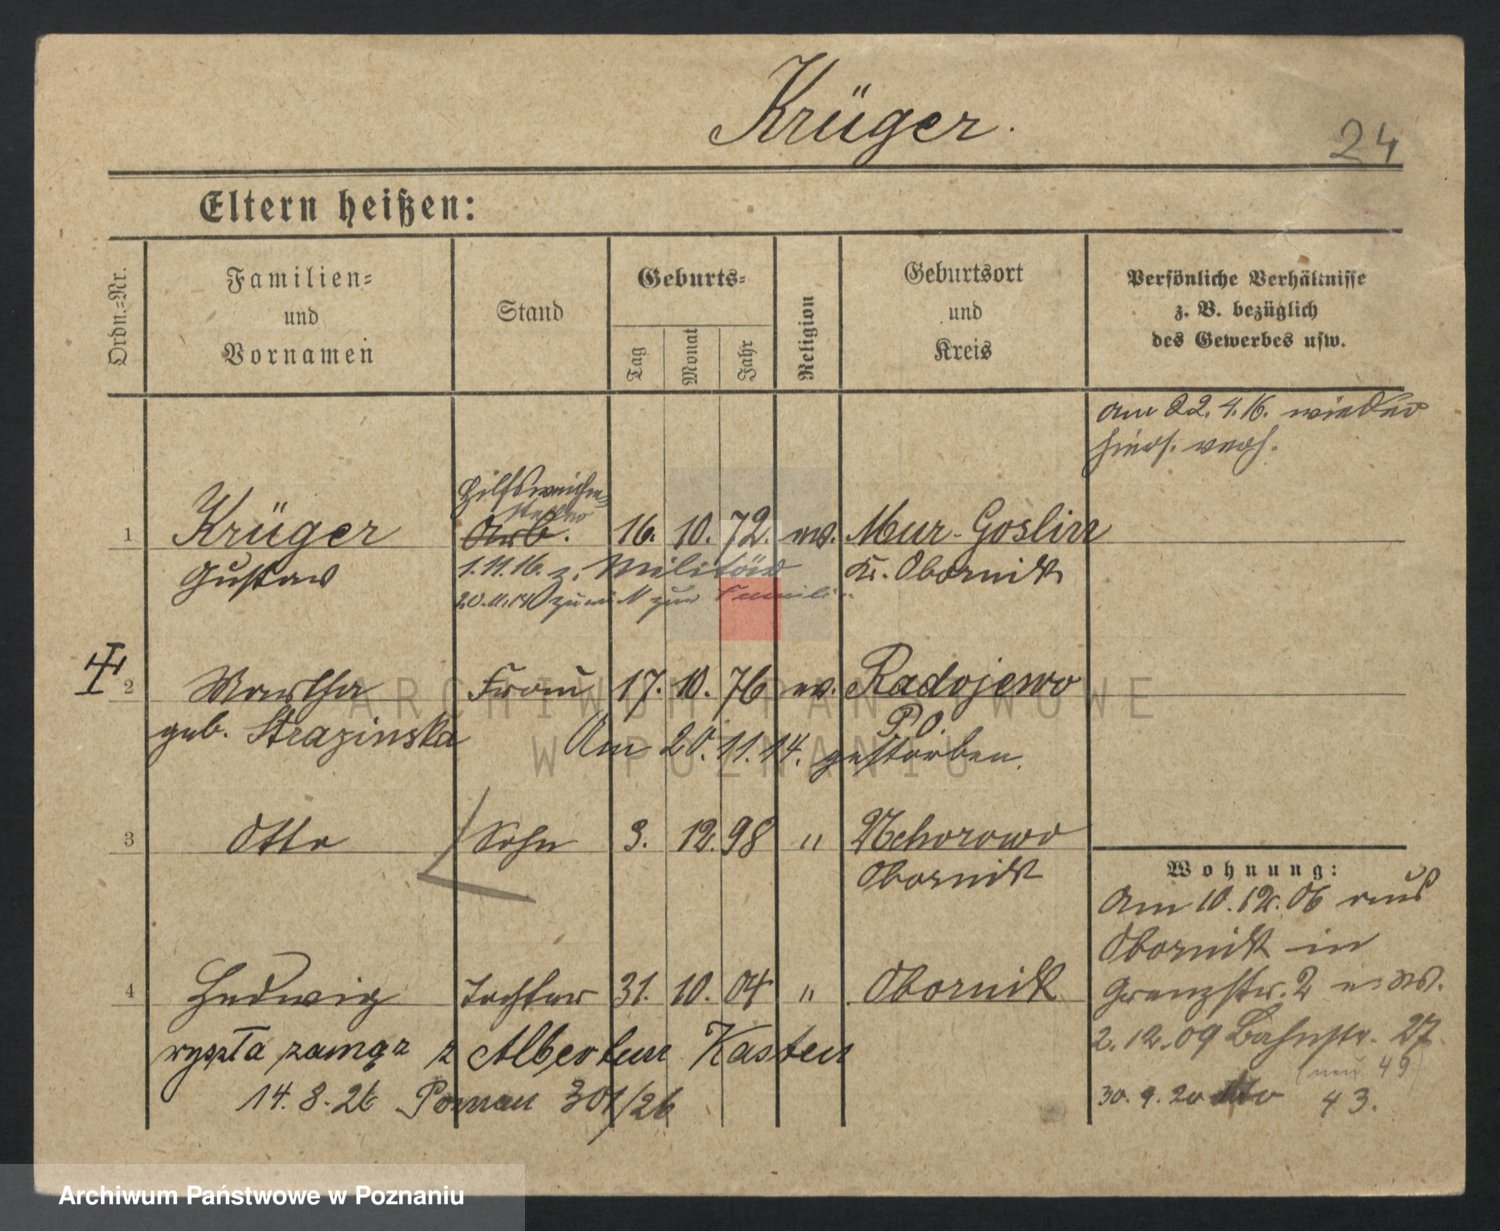 Krüger.
24
Eltern heißen:
Ordn.-Nr.
Familien-
und
Vornamen
Stand
Geburts-
Tag
Monat
Jahr
Religion
Geburtsort
und
Kreis
Persönliche Verhältnisse
z. B. bezüglich
des Gewerbes usw.
am 22.4.16. wieder
hiers.
1 Krüger Arb. 16. 10. 72. ev. Mur-Goslin
Hilfsweichen-
steller
Gustav 1.11.16. z. Militär Kr. Obornik
zurück zur Familie
2 Martha Frau 17. 10. 76 ev. Radojewo
P.O.
geb. Strazinska Am 20.11.14. gestorben.
3 Otto Sohn 3. 12. 98 "
Obornik
Wohnung:
Am 10.12.06 aus
Obornik in
Grenzstr. 2
4 Hedwig Tochter 31. 10. 04 " Obornik
2.12.09 Bahnstr. 27
(neu 49)
wyszła zamąż z Albertem Kasten
14.8.26 Poznań 301/26
30.9.20 43.
ARCHIWUM PAŃSTWOWE
W POZNANIU
Archiwum Państwowe w Poznaniu